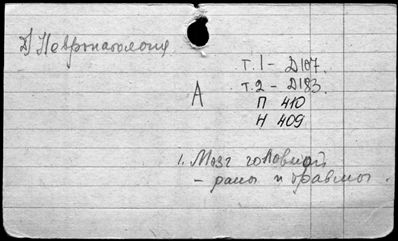 Д) Невропатология
т. 1 - Д107.
т. 2 - Д183.
А
П 410
Н 409
1. Мозг головной
- раны и травмы.